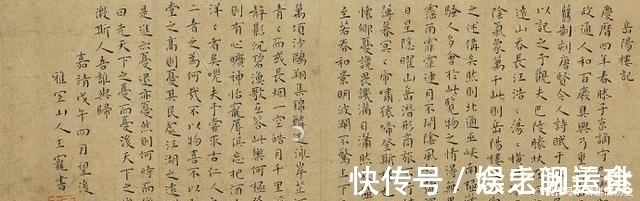 岳陽樓記
慶曆四年春滕子京謫守
政通人和百廢具興乃重
舊制刻唐賢今人詩賦于
以記之予觀夫巴陵勝狀
遠山吞長江浩浩蕩蕩橫
陰氣象萬千此則岳陽樓
之述備矣然則北通巫峽南
騷人多會於此覽物之情得
霪雨霏霏連月不開陰風
日星隱曜山岳潛形商旅
薄暮冥冥虎嘯猿啼登斯
懷鄉憂讒畏譏滿目蕭然
至若春和景明波瀾不驚上下
萬頃沙鷗翔集錦鱗游泳岸芷
青青而或長煙一空皓月千里
靜影沉璧漁歌互答此樂何極
則有心曠神怡寵辱俱忘把酒
洋洋者矣嗟夫予嘗求古仁人
二者之為何哉不以物喜不以
堂之高則憂其民處江湖之遠
是進亦憂退亦憂然則何時而
曰先天下之憂而憂後天下之
微斯人吾誰與歸
嘉靖戊午四月望後
雅宜山人王寵書
快传号 /